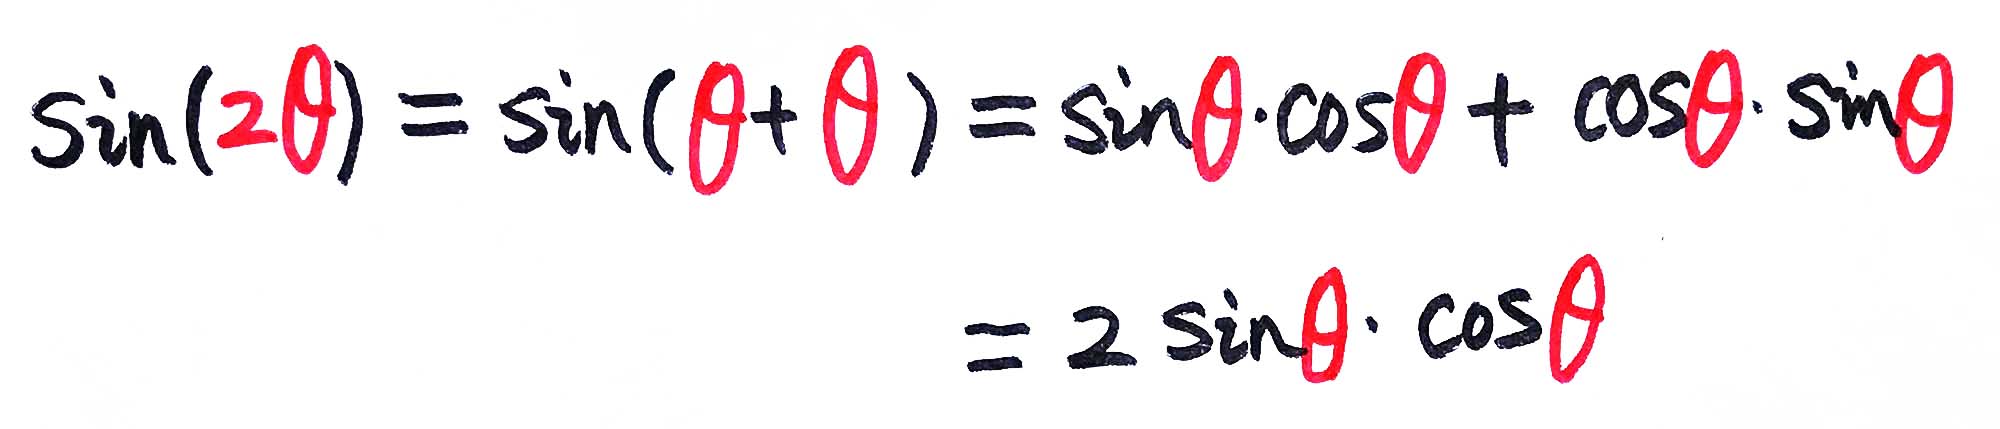 sin(2θ) = sin(θ + θ) = sinθ·cosθ + cosθ·sinθ
= 2 sinθ · cosθ